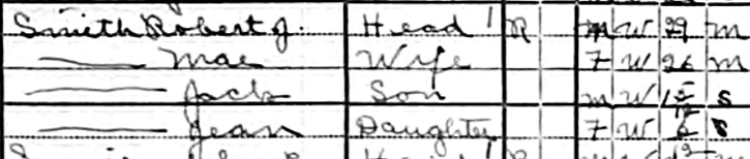 Smith Robert J. Head 1 R M W 29 M
—— Mae Wife F W 26 M
—— Jack Son M W S
—— Jean Daughter F W S
Head 1 R